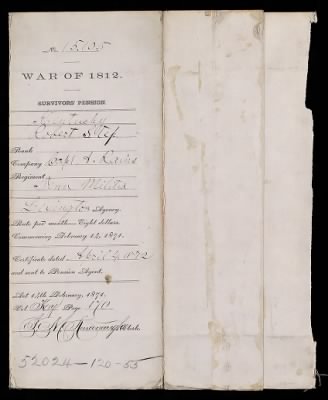 No. 15,035
WAR OF 1812.
SURVIVORS' PENSION.
Kentucky
Robert
Rank
Company Capt
Regiment
Militia
Lexington Agency.
Rate per month—Eight dollars.
Commencing February 14, 1871.
Certificate dated April 4, 1872
and sent to Pension Agent.
Act 14th February, 1871.
Vol Ky Page 170
Clerk.
52024-120-55